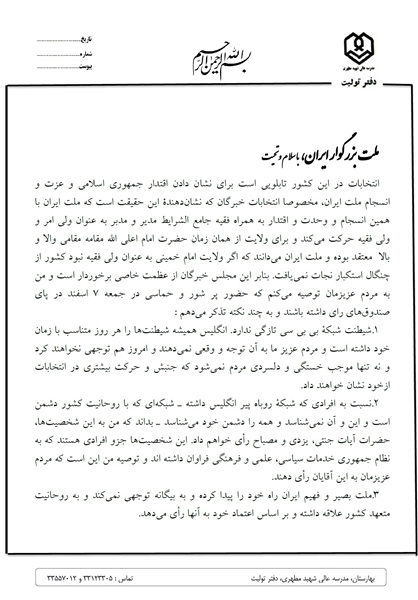 بسم الله الرحمن الرحیم
تاریخ
شماره
پیوست
مدرسه عالی شهید مطهری
دفتر تولیت
ملت بزرگوار ایران، با سلام و تحیت
انتخابات در این کشور تابلویی است برای نشان دادن اقتدار جمهوری اسلامی و عزت و
انسجام ملت ایران، مخصوصا انتخابات خبرگان که نشان‌دهندهٔ این حقیقت است که ملت ایران با
همین انسجام و وحدت و اقتدار به همراه فقیه جامع الشرایط مدیر و مدبر به عنوان ولی امر و
ولی فقیه حرکت می‌کند و برای ولایت از همان زمان حضرت امام اعلی الله مقامه مقامی والا و
بالا معتقد بوده و ملت ایران می‌دانند که اگر ولایت امام خمینی به عنوان ولی فقیه نبود کشور از
چنگال استکبار نجات نمی‌یافت. بنابر این مجلس خبرگان از عظمت خاصی برخوردار است و من
به مردم عزیزمان توصیه می‌کنم که حضور پر شور و حماسی در جمعه ۷ اسفند در پای
صندوق‌های رای داشته باشند و به چند نکته تذکر می‌دهم :
۱.شیطنت شبکهٔ بی بی سی تازگی ندارد. انگلیس همیشه شیطنت‌ها را هر روز متناسب با زمان
خود داشته است و مردم عزیز ما به آن توجه و وقعی نمی‌دهند و امروز هم توجهی نخواهند کرد
و نه تنها موجب خستگی و دلسردی مردم نمی‌شود که جنبش و حرکت بیشتری در انتخابات
ازخود نشان خواهند داد.
۲.نسبت به افرادی که شبکهٔ روباه پیر انگلیس داشته ـ شبکه‌ای که با روحانیت کشور دشمن
است و این و آن نمی‌شناسد و همه را دشمن خود می‌شناسد ـ بداند که من به این شخصیت‌ها،
حضرات آیات جنتی، یزدی و مصباح رأی خواهم داد. این شخصیت‌ها جزو افرادی هستند که به
نظام جمهوری خدمات سیاسی، علمی و فرهنگی فراوان داشته اند و توصیه من این است که مردم
عزیزمان به این آقایان رأی دهند.
۳.ملت بصیر و فهیم ایران راه خود را پیدا کرده و به بیگانه توجهی نمی‌کند و به روحانیت
متعهد کشور علاقه داشته و بر اساس اعتماد خود به آنها رأی می‌دهد.
بهارستان، مدرسه عالی شهید مطهری، دفتر تولیت
تماس : ۳۳۱۲۳۳۰۵ و ۳۳۵۵۷۰۱۲